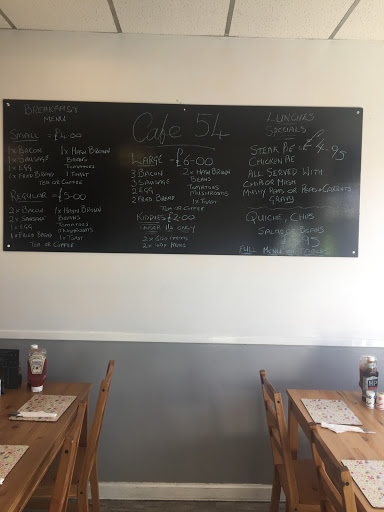 BREAKFAST
MENU
SMALL = £4.00
1x BACON 1x HASH BROWN
1x SAUSAGE BEANS
1x EGG TOMATOES
1x FRIED BREAD 1 TOAST
TEA OR COFFEE
REGULAR = £5-00
2x BACON 1x HASH BROWN
2x SAUSAGE BEANS
1x EGG TOMATOES
1x FRIED BREAD MUSHROOMS
1x TOAST
TEA OR COFFEE
Cafe 54
LARGE - £6-00
3 BACON 2x HASH BROWN
3 SAUSAGE BEANS
2 EGG TOMATOES
2 FRIED BREAD MUSHROOMS
1x TOAST
TEA OR COFFEE
KIDDIES £2.00
UNDER 11s ONLY
LUNCHES
SPECIALS
STEAK PIE = £4.95
CHICKEN PIE
ALL SERVED WITH
CHIPS OR MASH
MUSHY PEAS OR PEAS + CARROTS
GRAVY
QUICHE, CHIPS
SALAD OR BEANS
FULL MENU ON
HP